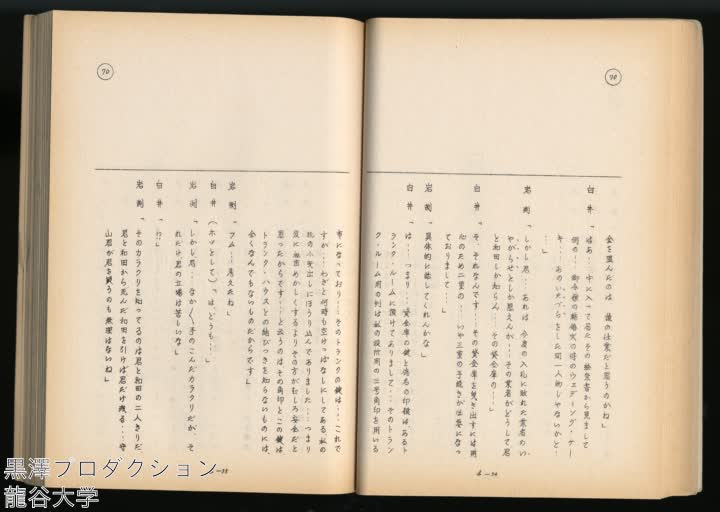 70
金を盗んだのは 誰の仕業だと思うのかね」
白井「はあ‥中に入って居たその絵葉書から見まして
例の‥御令嬢の結婚式の時のウェディング・ケー
キ‥あのいたづらをした同一人物じゃないかと‥
‥」
岩渕「しかし君‥あれは 今度の入札に敗れた業者のい
やがらせとしか思えんが‥その業者がどうして君
と和田しか知らん‥その貸金庫の‥」
白井「そ、それなんです‥その貸金庫を曳き出すには用
心のため二重の‥いや三重の手続きが必要になっ
ておりまして」
岩渕「具体的に話してくれんかな」
白井「は‥つまり‥貸金庫の鍵と偽名の印鑑はあるト
ランク・ルームに預けてありまして‥そのトラン
ク・ルーム用の判は私の設計用の三号角印を用いる
b-34
70
事になっており‥そのトランクの鍵は‥これで
すが‥わざと何時も空けっぱなしにしてある私の
机の小曳出しにほうり込んでありました‥つまり
変に秘密めかしくするよりその方がむしろ安全だと
思ったからです‥と云うのはその角印とこの鍵は
トランク・ハウスとの結びつきを知らないものには、
全くなんでもないものだからです」
岩渕「フム‥考えたね」
白井（ホッとして）「は、どうも‥」
岩渕「しかし君‥なか〱手のこんだカラクリだが、そ
れだけ君の立場は苦しいな」
白井「は？」
岩渕「そのカラクリを知ってるのは君と和田の二人きりだ、
君と和田から死んだ和田を引けば君だけ残る‥守
山君が君を疑うのも無理はないね」
-35
黒澤プロダクション
龍谷大学